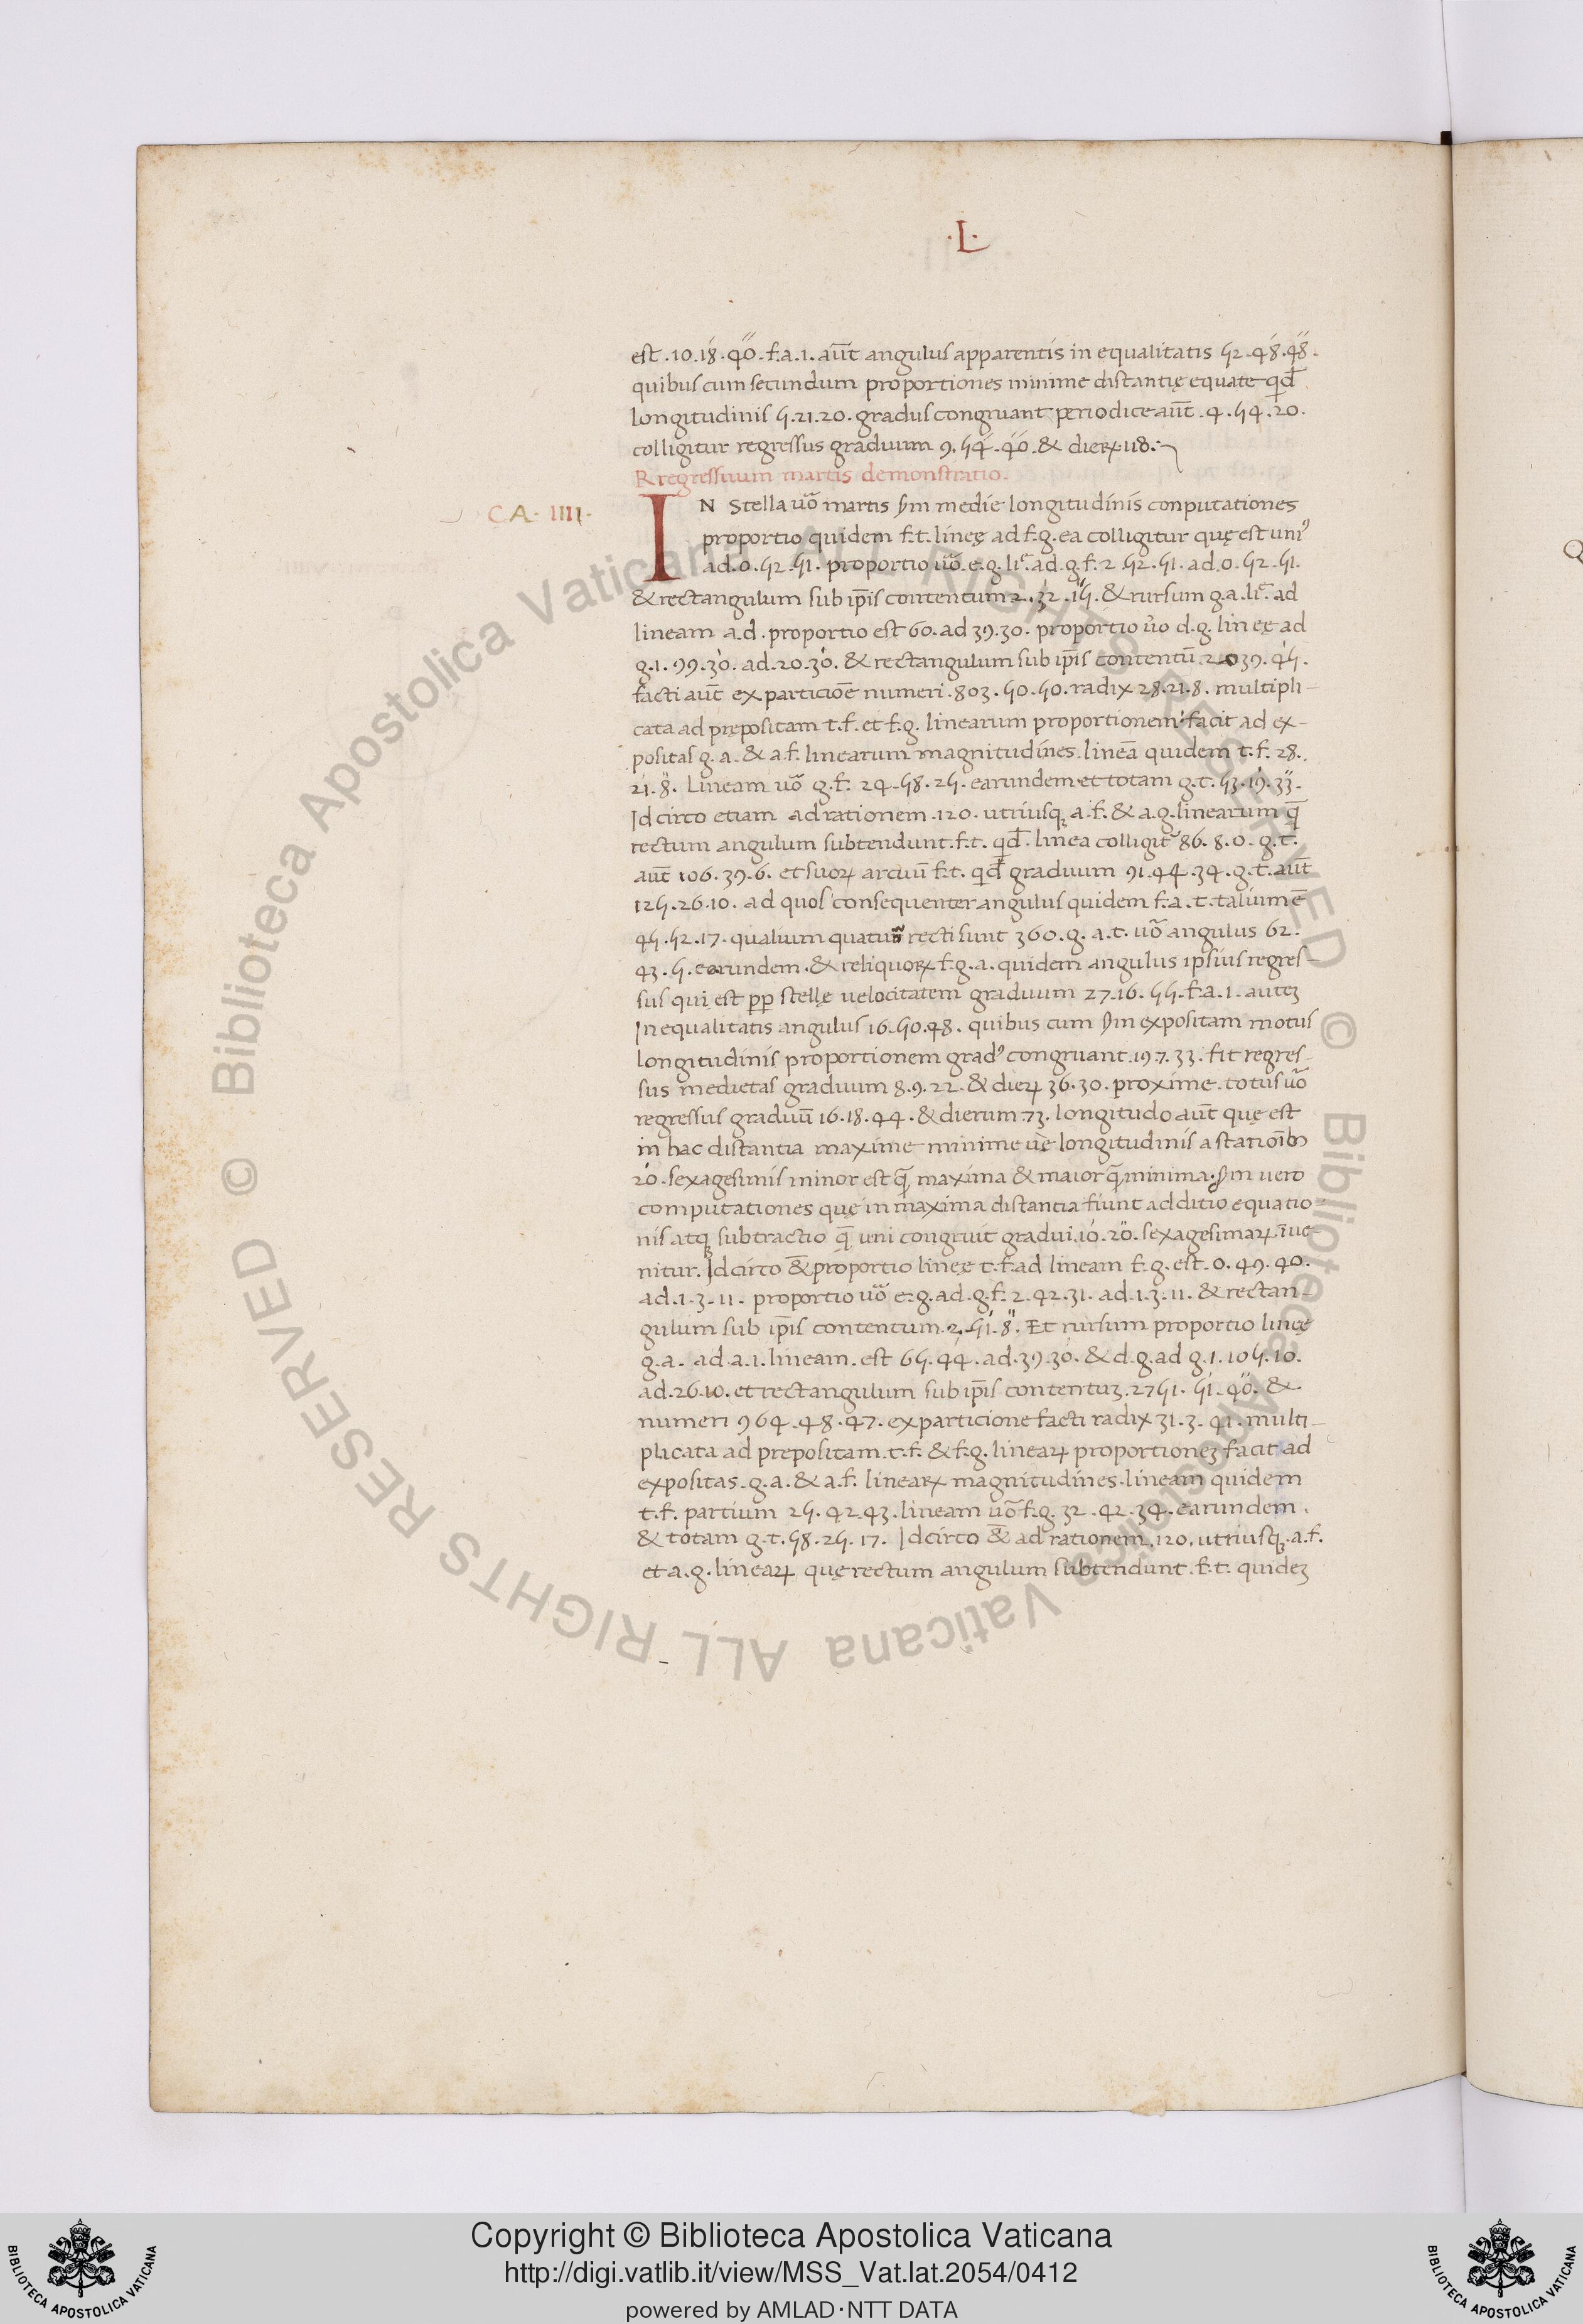 ·L·
est . 10 . 18́ . 40̋ . f.a.1. aut̄ angulus apparentis in equalitatis 52 . 48́ . 48̋ .
quibus cum secundum proportiones minime distantię equate qid̄
longitudinis 5.21.20. gradus congruant periodice aut̄ . 4 . 54 . 20 .
colligitur regressus graduum 9. 54́ . 40̋ . & dierꝝ 118 :
Rregressuum martis demonstratio .
CA · IIII ·
IN Stella uō martis ẜm medie longitudinis conputationes
proportio quidem f.t. lineę ad f.g. ea colligitur quę est uniꝰ
ad . 0 . 52 . 51 . proportio uō . e.g. liᵉ. ad . g.f. 2 . 52 . 51 . ad . 0 . 52 . 51 .
& rectangulum sub ip̄is contentum 2 . 32́ . 15̋ . & rursum g.a. liᵉ. ad
lineam a.d . proportio est 60. ad 39.30. proportio ūo d.g. lineę ad
g.1. 99.30́. ad . 20 . 30́. & rectangulum sub ip̄is contentū . 2039 . 45́ .
facti aut̄ ex particiōe numeri . 803 . 50 . 50 . radix 28.21.8. multipli-
cata ad prępositam t.f. et f.g. linearum proportionem facit ad ex-
positas g. a. & a.f. linearum magnitudines lineā quidem t.f. 28 .
21́ . 8̋ . Lineam uō g.f. 24 . 58 . 25 . earundem et totam g.t. 53 . 19́ . 33̋ .
Idcirco etiam ad rationem . 120 . utriusqꝫ a.f. & a.g. linearum q̄
rectum angulum subtendunt . f.t. qid̄ . linea colligit᷑ 86 . 8 . 0 . g.t.
aut̄ 106 . 39 . 6 . et suoꝝ arcuū f.t. qid̄ graduum 91 . 44 . 34 . g.t. aut̄
125 . 26 . 10 . ad quos consequenter angulus quidem f.a.t. talium ē
45 . 52 . 17 . qualium quatuor recti sunt 360 . g. a.t. uō angulus 62 .
43 . 5 . eorundem . & reliquoꝝ f.g.a. quidem angulus ipsius regres-
sus qui est pp̄ stellę uelocitatem graduum 27.16. 55. f.a.1. auteꝫ
Inequalitatis angulus 16 . 50 . 48 . quibus cum ẜm expositam motus
longitudinis proportionem gradꝰ congruant . 19.7.33. fit regres-
sus medietas graduum 8.9.22. & dierꝝ 36.30. proxime . totus uō
regressus graduū 16.18.44. & dierum 73. longitudo aut̄ quę est
in hac distantia maxime minime uè longitudinis a statioībꝫ
20́ . sexagesimis minor est q̄ꝫ maxima & maior q̄ꝫ minima . ẜm uero
computationes quę in maxima distantia fiunt additio equatio
nis atqꝫ subtractio q̄ uni congruit gradui . 10́ . 20̋ . sexagesimaꝝ īue
nitur . Idcirco &̄ proportio lineę t.f. ad lineam f.g. est . 0 . 49 . 40 .
ad . 1 . 3 . 11 . proportio uō e.g. ad . g.f. 2 . 42 . 31 . ad . 1 . 3 . 11 . & rectan-
gulum sub ip̄is contentum . 2 . 51́ . 8̋ . Et rursum proportio lineę
g.a. ad . a.1. lineam . est 65.44́. ad . 39.30́. & d.g. ad g.1. 105.10.
ad . 26.10. et rectangulum sub ip̄is contentuꝫ . 2751 . 51́ . 40̋ . &
numeri 964 . 48 . 47 . ex particione facti radix 31.3. 41 . multi-
plicata ad prepositam . t.f. & f.g. lineaꝝ proportioneꝫ facit ad
expositas . g.a. & a.f. lineaꝝ magnitudines . lineam quidem
t.f. partium 25 . 42 . 43 . lineam uō f.g. 32 . 42 . 34 . earundem .
& totam g.t. 58 . 25 . 17 . Idcirco &̄ ad rationem . 120 . utriusqꝫ . a.f.
et a.g. lineaꝝ quę rectum angulum subtendunt . f.t. quideꝫ
© Biblioteca Apostolica Vaticana ALL RIGHTS RESERVED
© Biblioteca Apostolica Vaticana ALL RIGHTS RESERVED
Copyright © Biblioteca Apostolica Vaticana
http://digi.vatlib.it/view/MSS_Vat.lat.2054/0412
powered by AMLAD·NTT DATA
BIBLIOTECA APOSTOLICA VATICANA
BIBLIOTECA APOSTOLICA VATICANA